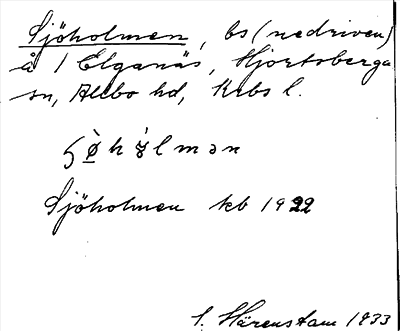 Sjöholmen, bs (nedriven)
å 1 Elganäs, Hjortsberga
sn, Allbo hd, Krbs l.
ʂø̀hɷ́lmən
Sjöholmen kb 1922
S. Härenstam 1933